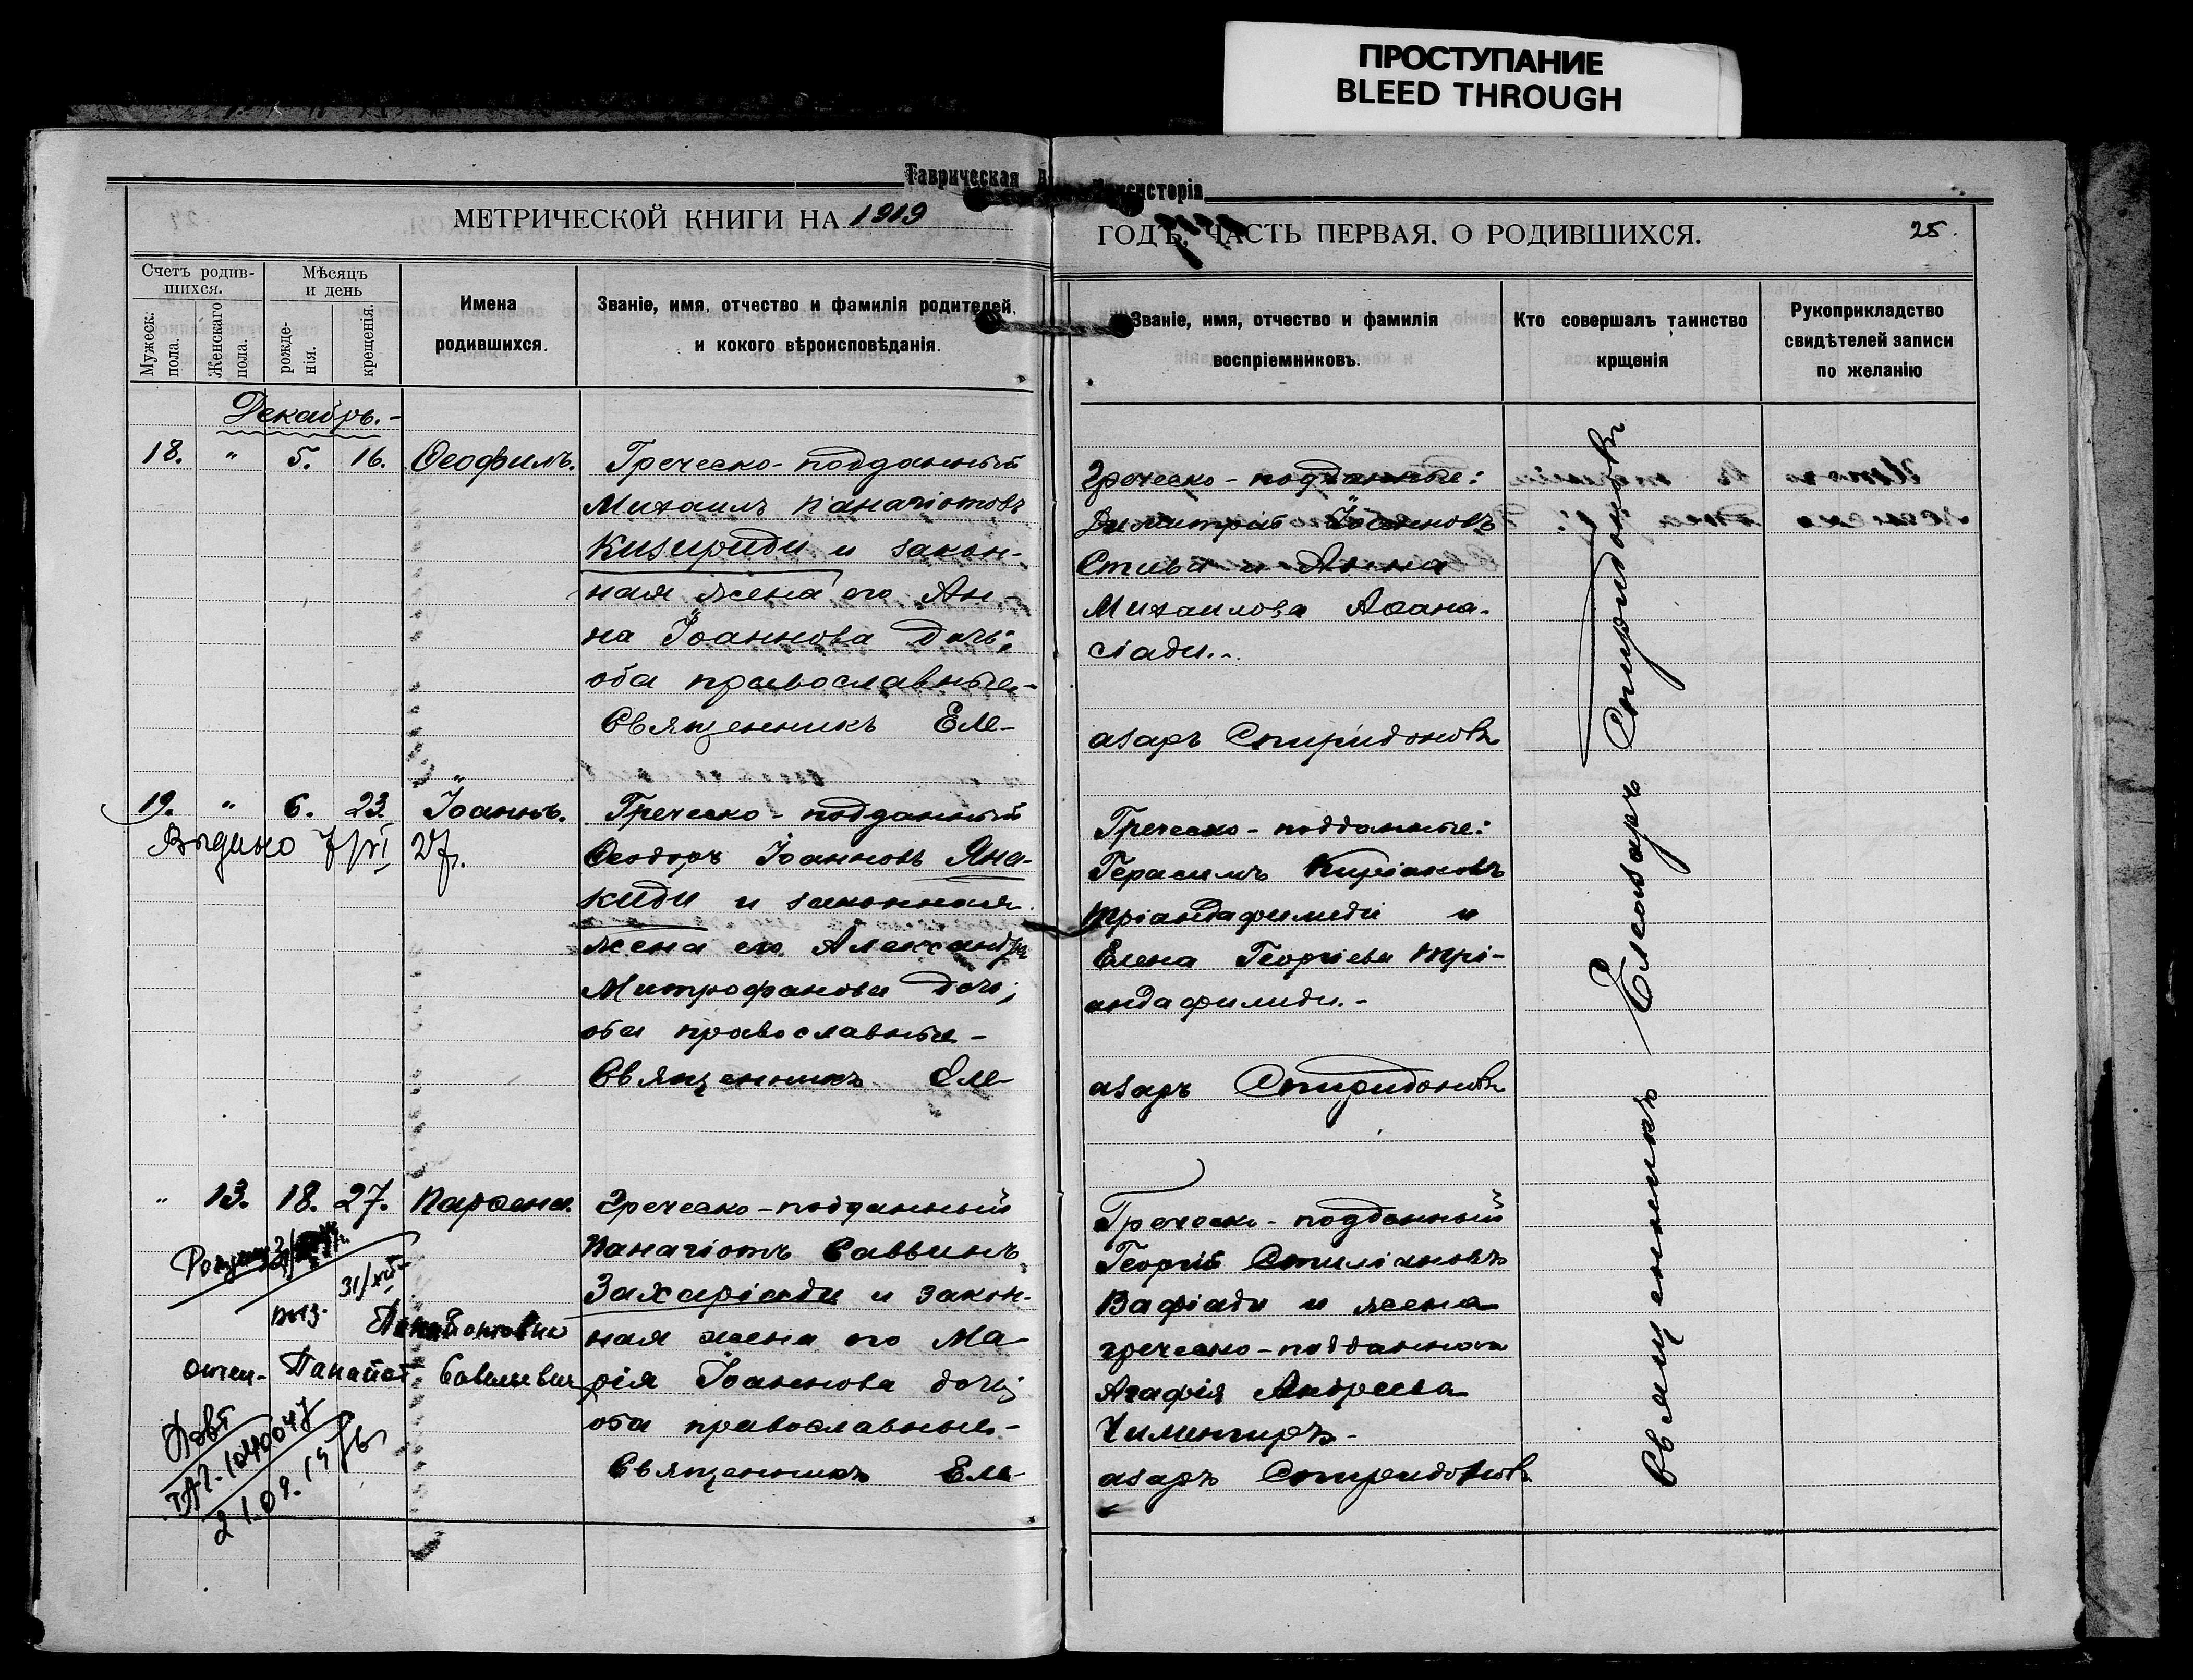 ПРОСТУПАНИЕ
BLEED THROUGH
Таврическая Д. Консисторія
МЕТРИЧЕСКОЙ КНИГИ НА 1919
ГОДЪ, ЧАСТЬ ПЕРВАЯ. О РОДИВШИХСЯ.
25.
Счетъ родив-
шихся.
Мужеск.
пола.
Женскаго
пола.
Мѣсяцъ
и день
рожде-
нія.
крещенія.
Имена
родившихся.
Званіе, имя, отчество и фамилія родителей,
и кокого вѣроисповѣданія.
Званіе, имя, отчество и фамилія
воспріемниковъ.
Кто совершалъ таинство
крщенія
Рукоприкладство
свидѣтелей записи
по желанію
Декабрь.-
18. " 5. 16. Ѳеофилъ.
Греческо-подданный
Михаилъ Панагіотовъ
Кизириди и закон-
ная жена его Ан-
на Іоаннова дочь;
оба православные.-
Священникъ Еле-
Греческо-подданные:
Димитрій Іоанновъ
и Анна
Михаилова Аѳана-
сіади.-
азаръ Спиридоновъ
19. " 6. 23. Іоаннъ.
Выдано 7/VI 27г.
Греческо-подданный
Ѳеодоръ Іоанновъ Яна-
киди и законная
жена его Александра
Митрофанова дочь;
оба православные-
Священникъ Еле-
Греческо-подданные:
Герасимъ Киріаковъ
Тріандафилиди и
Елена Георгіева Трі-
андафилиди.-
азаръ Спиридоновъ
" 13. 18. 27. Парѳена.
31/XII
Панайотовна
отец- Панайот Савельевич
21.09.1976
Греческо-подданный
Панагіотъ Саввинъ
Захаріади и закон-
ная жена его Ма-
рія Іоаннова дочь;
оба православные-
Священникъ Еле-
Греческо-подданный
Георгій Стиліановъ
Вафіади и жена
греческо-подданнаго
Агафія Андреева
Чилингиръ-
азаръ Спиридоновъ
Священникъ Елеазаръ Спиридоновъ